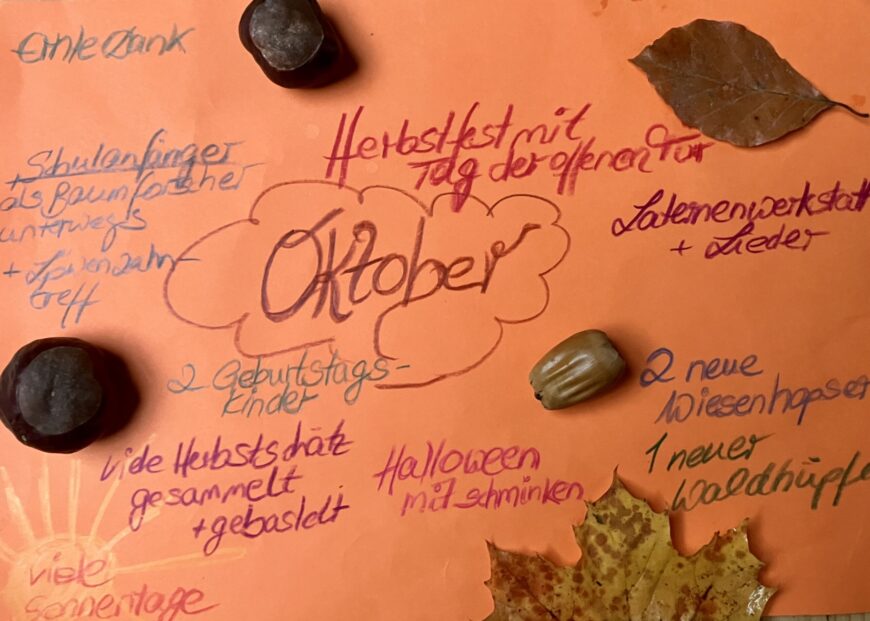 Erntedank
Herbstfest mit
Tag der offenen Tür
+ Schulanfänger
als Baumforscher
unterwegs
+ Löwenzahn-
treff
Laternenwerkstatt
+ Lieder
Oktober
2 Geburtstags-
kinder
2 neue
Wiesenhopser
1 neuer
Waldhüpfe
viele Herbstschätz
gesammelt
+gebastelt
Halloween
mit schminken
viele
Sonnentage